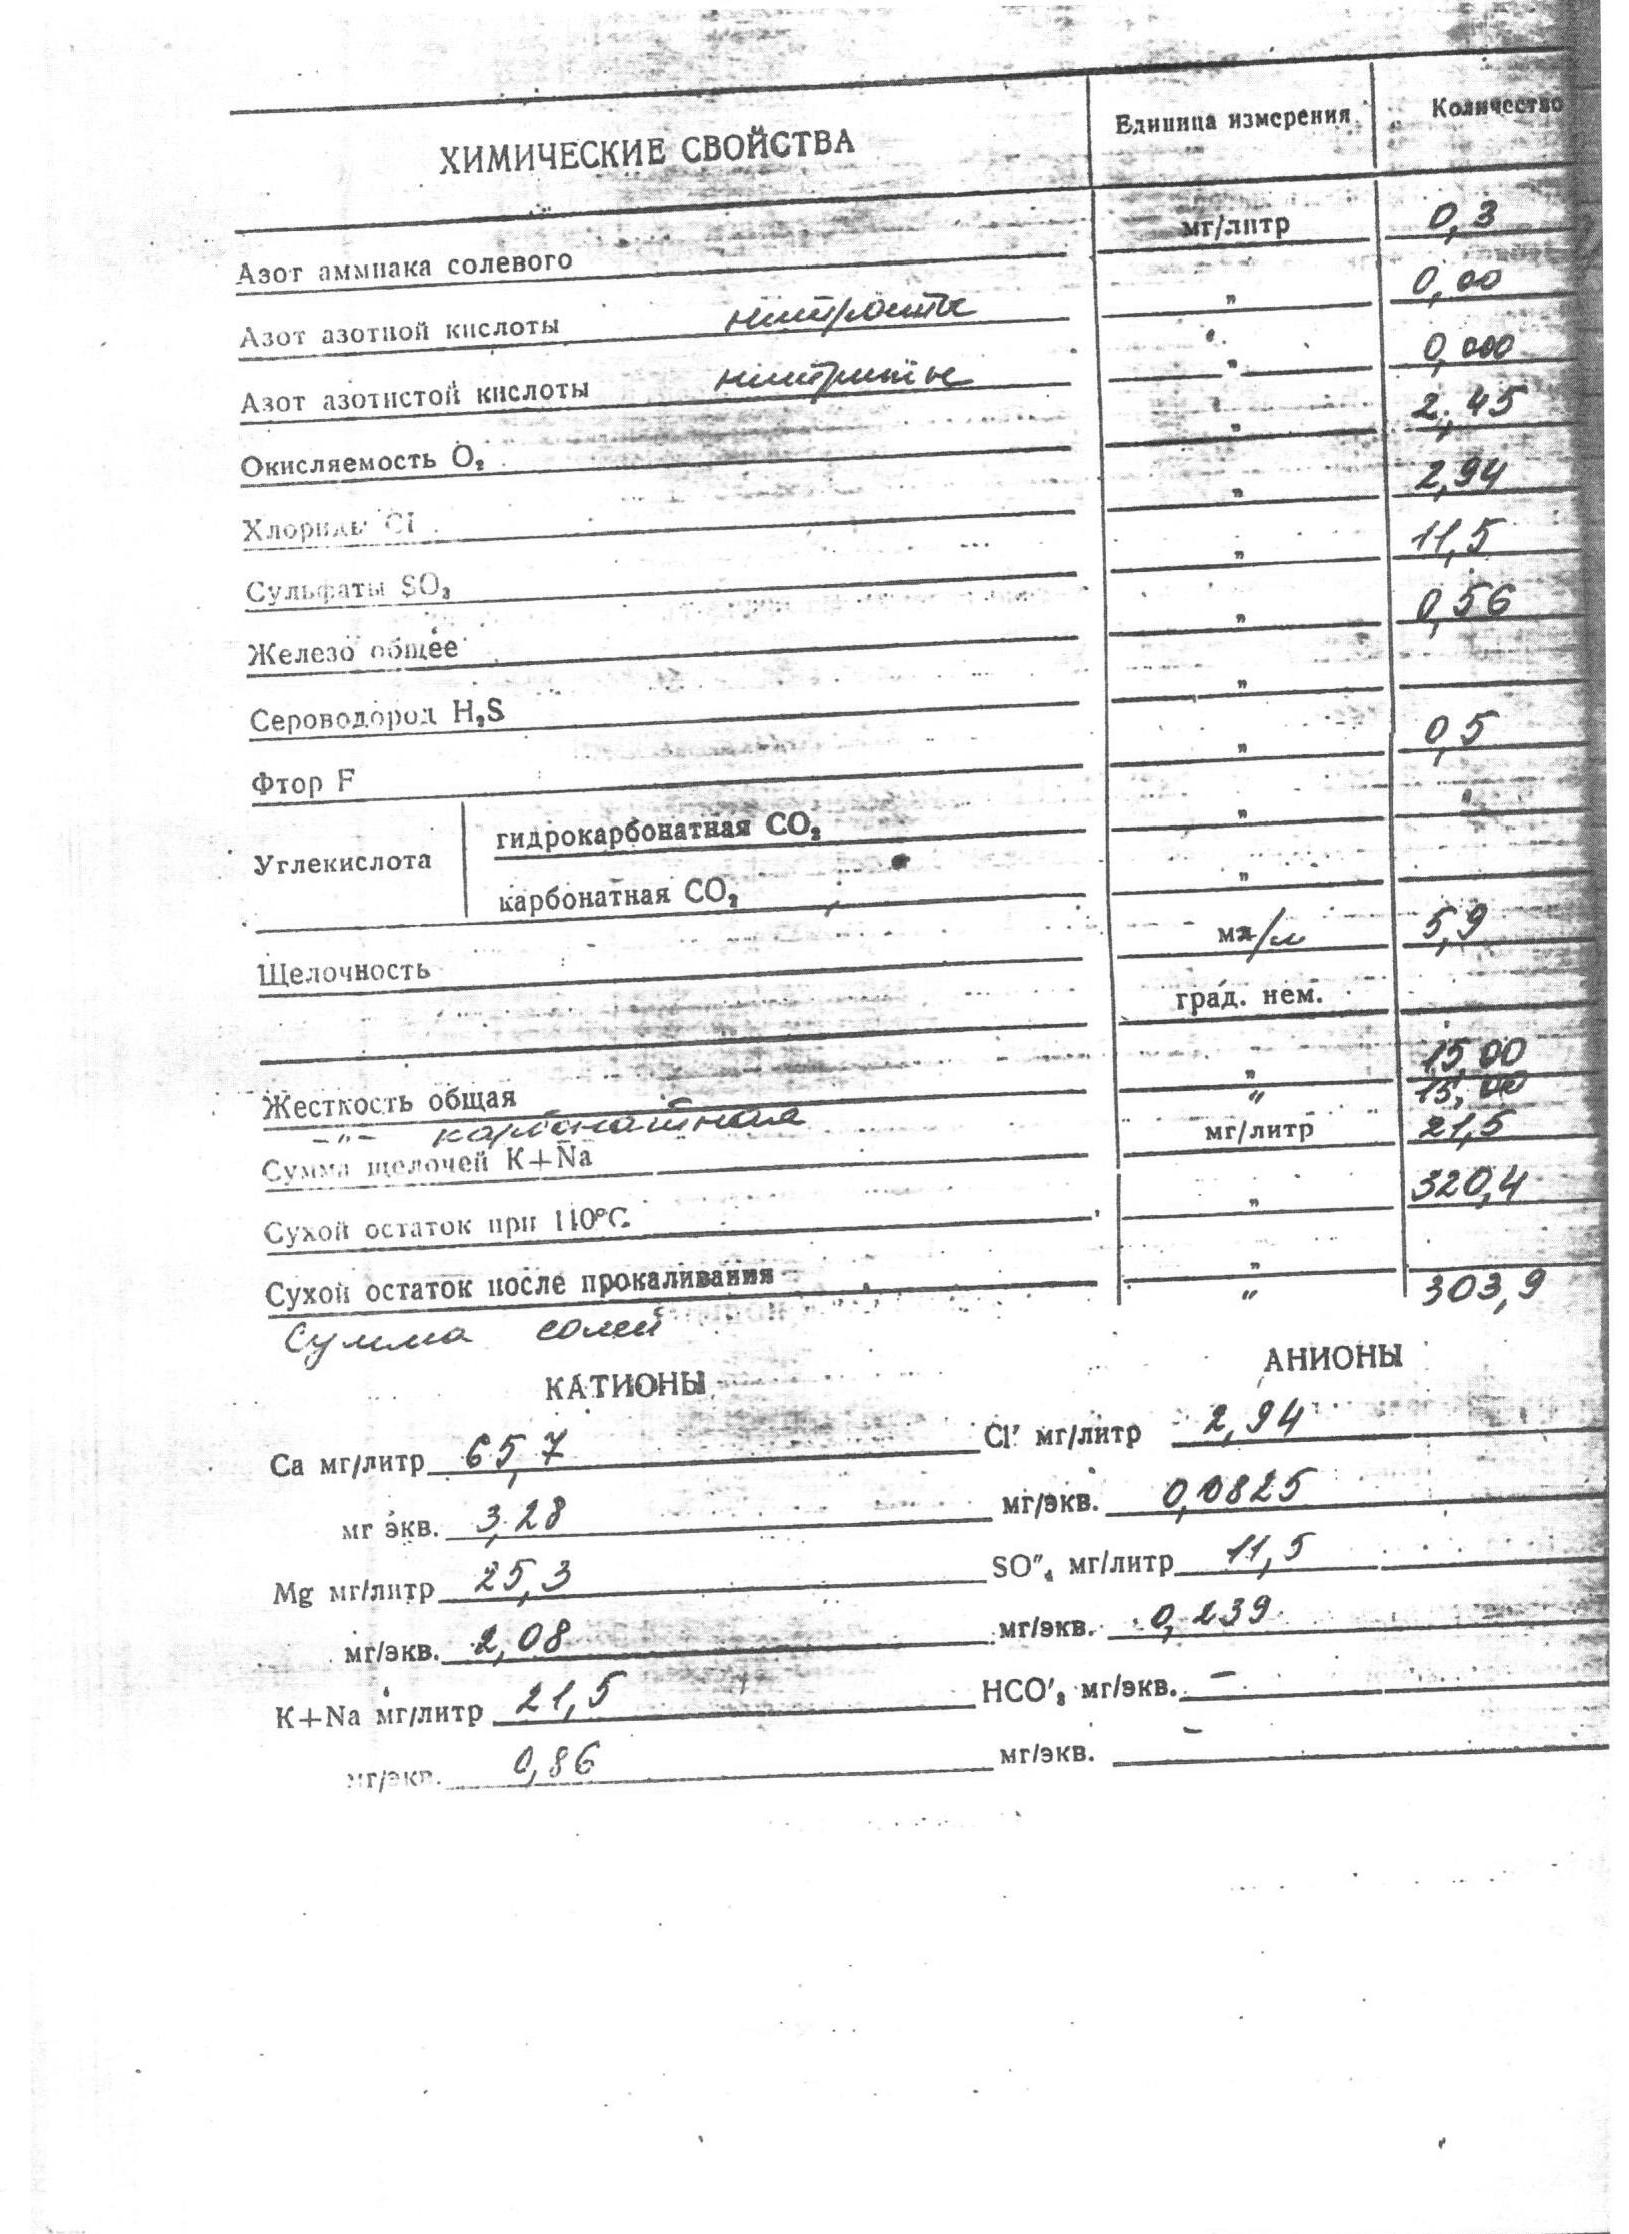 ХИМИЧЕСКИЕ СВОЙСТВА Единица измерения Количество
Азот аммиака солевого мг/литр 0,3
Азот азотной кислоты нитраты " 0,00
Азот азотистой кислоты нитриты " 0,000
Окисляемость O₂ " 2,45
Хлориды Cl " 2,94
Сульфаты SO₃ " 11,5
Железо общее " 0,56
Сероводород H₂S "
Фтор F " 0,5
Углекислота гидрокарбонатная CO₂ "
карбонатная CO₂ "
Щелочность мл/л 5,9
град. нем.
Жесткость общая " 15,00
-"- карбонатная " 15,00
Сумма щелочей K+Na мг/литр 21,5
Сухой остаток при 110°C " 320,4
Сухой остаток после прокаливания "
Сумма солей " 303,9
КАТИОНЫ АНИОНЫ
Ca мг/литр 65,7 Cl′ мг/литр 2,94
мг экв. 3,28 мг/экв. 0,0825
Mg мг/литр 25,3 SO″₄ мг/литр 11,5
мг/экв. 2,08 мг/экв. 0,239
K+Na мг/литр 21,5 HCO′₃ мг/экв. –
мг/экв. 0,86 мг/экв. –